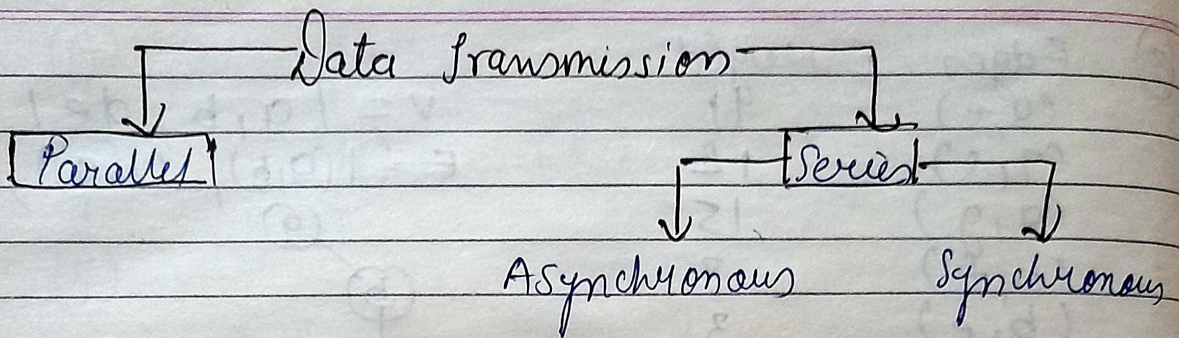 Data transmission
Parallel
Series
Asynchronous Synchronous